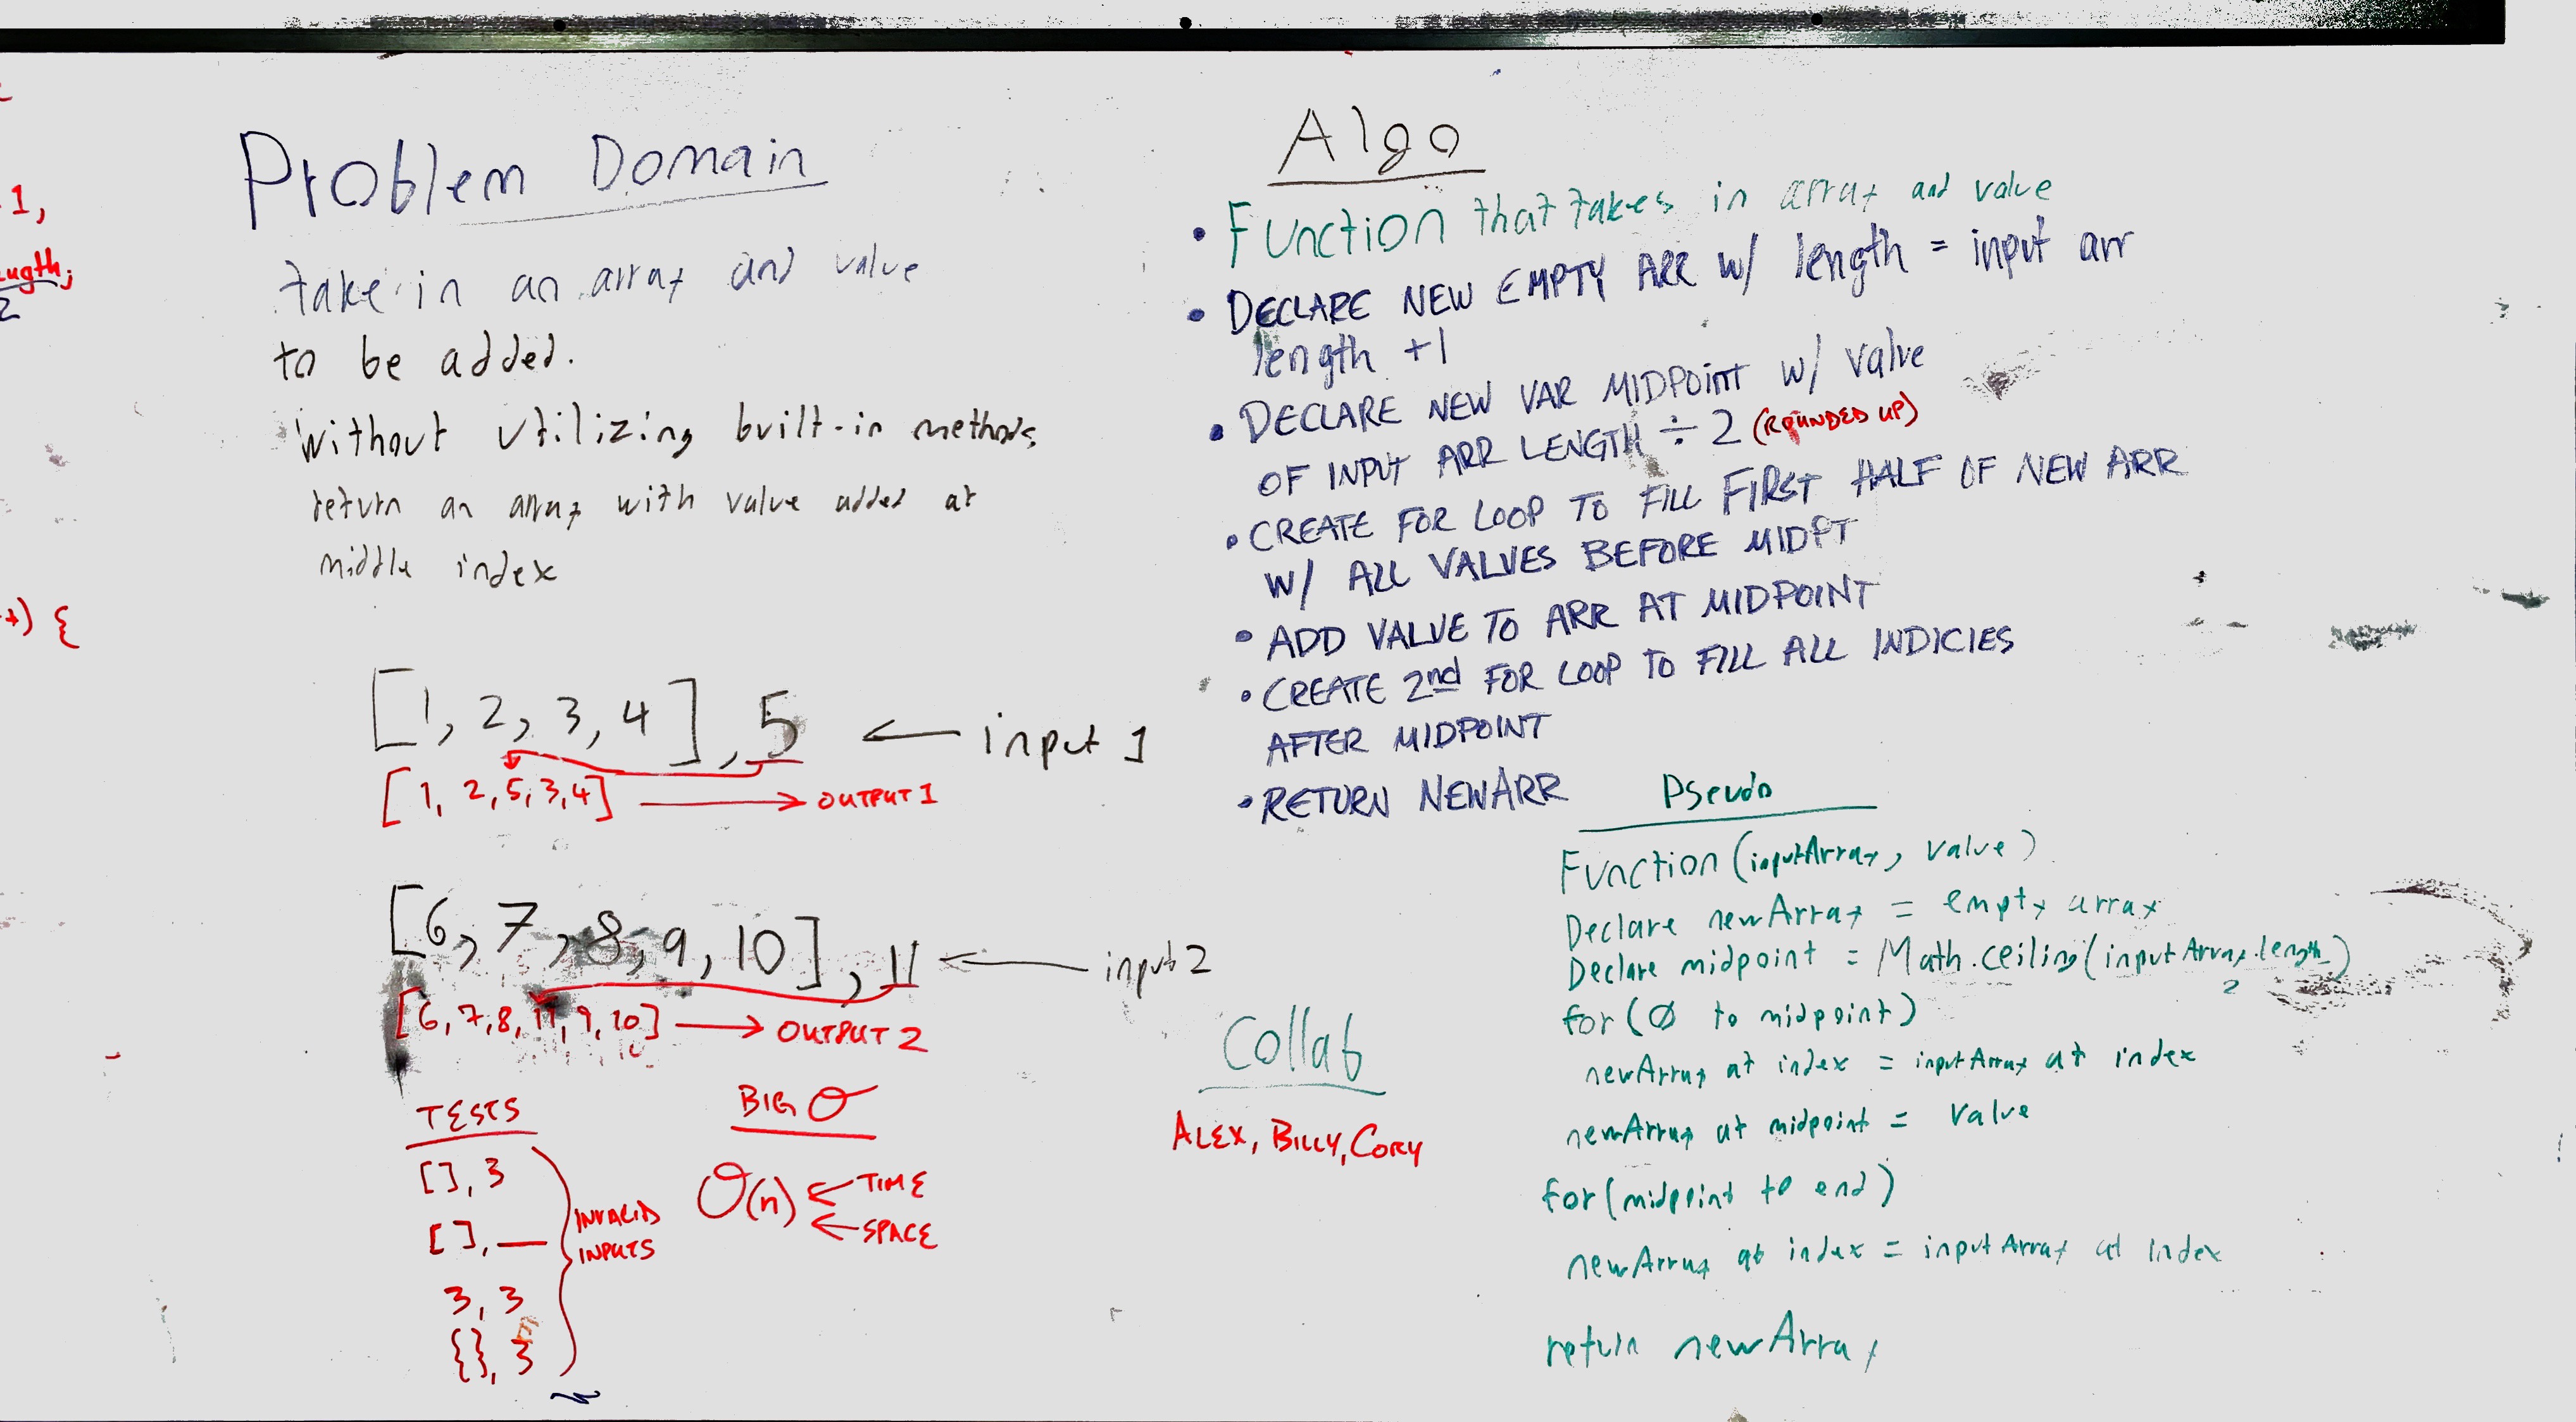 1,
ength;
2
) {
Problem Domain
take in an array and value
to be added.
Without utilizing built-in methods
return an array with value added at
middle index
[1, 2, 3, 4], 5 ← input 1
[1, 2, 5, 3, 4] → OUTPUT 1
[6, 7, 8, 9, 10], 11 ← input 2
[6, 7, 8, 11, 9, 10] → OUTPUT 2
TESTS
[], 3
[], __
3, 3
{}, 3
INVALID
INPUTS
BIG O
O(n) ← TIME
← SPACE
Algo
• Function that takes in array and value
• DECLARE NEW EMPTY ARR W/ length = input arr
length +1
• DECLARE NEW VAR MIDPOINT W/ Value
OF INPUT ARR LENGTH ÷ 2 (ROUNDED UP)
• CREATE FOR LOOP TO FILL FIRST HALF OF NEW ARR
W/ ALL VALUES BEFORE MIDPT
• ADD VALUE TO ARR AT MIDPOINT
• CREATE 2nd FOR LOOP TO FILL ALL INDICIES
AFTER MIDPOINT
• RETURN NEWARR
Collab
ALEX, BILLY, CORY
Pseudo
Function (inputArray, value)
Declare newArray = empty array
Declare midpoint = Math.ceiling(inputArray.length)
2
for (Ø to midpoint)
newArray at index = inputArray at index
newArray at midpoint = Value
for (midpoint to end)
newArray at index = inputArray at index
return newArray